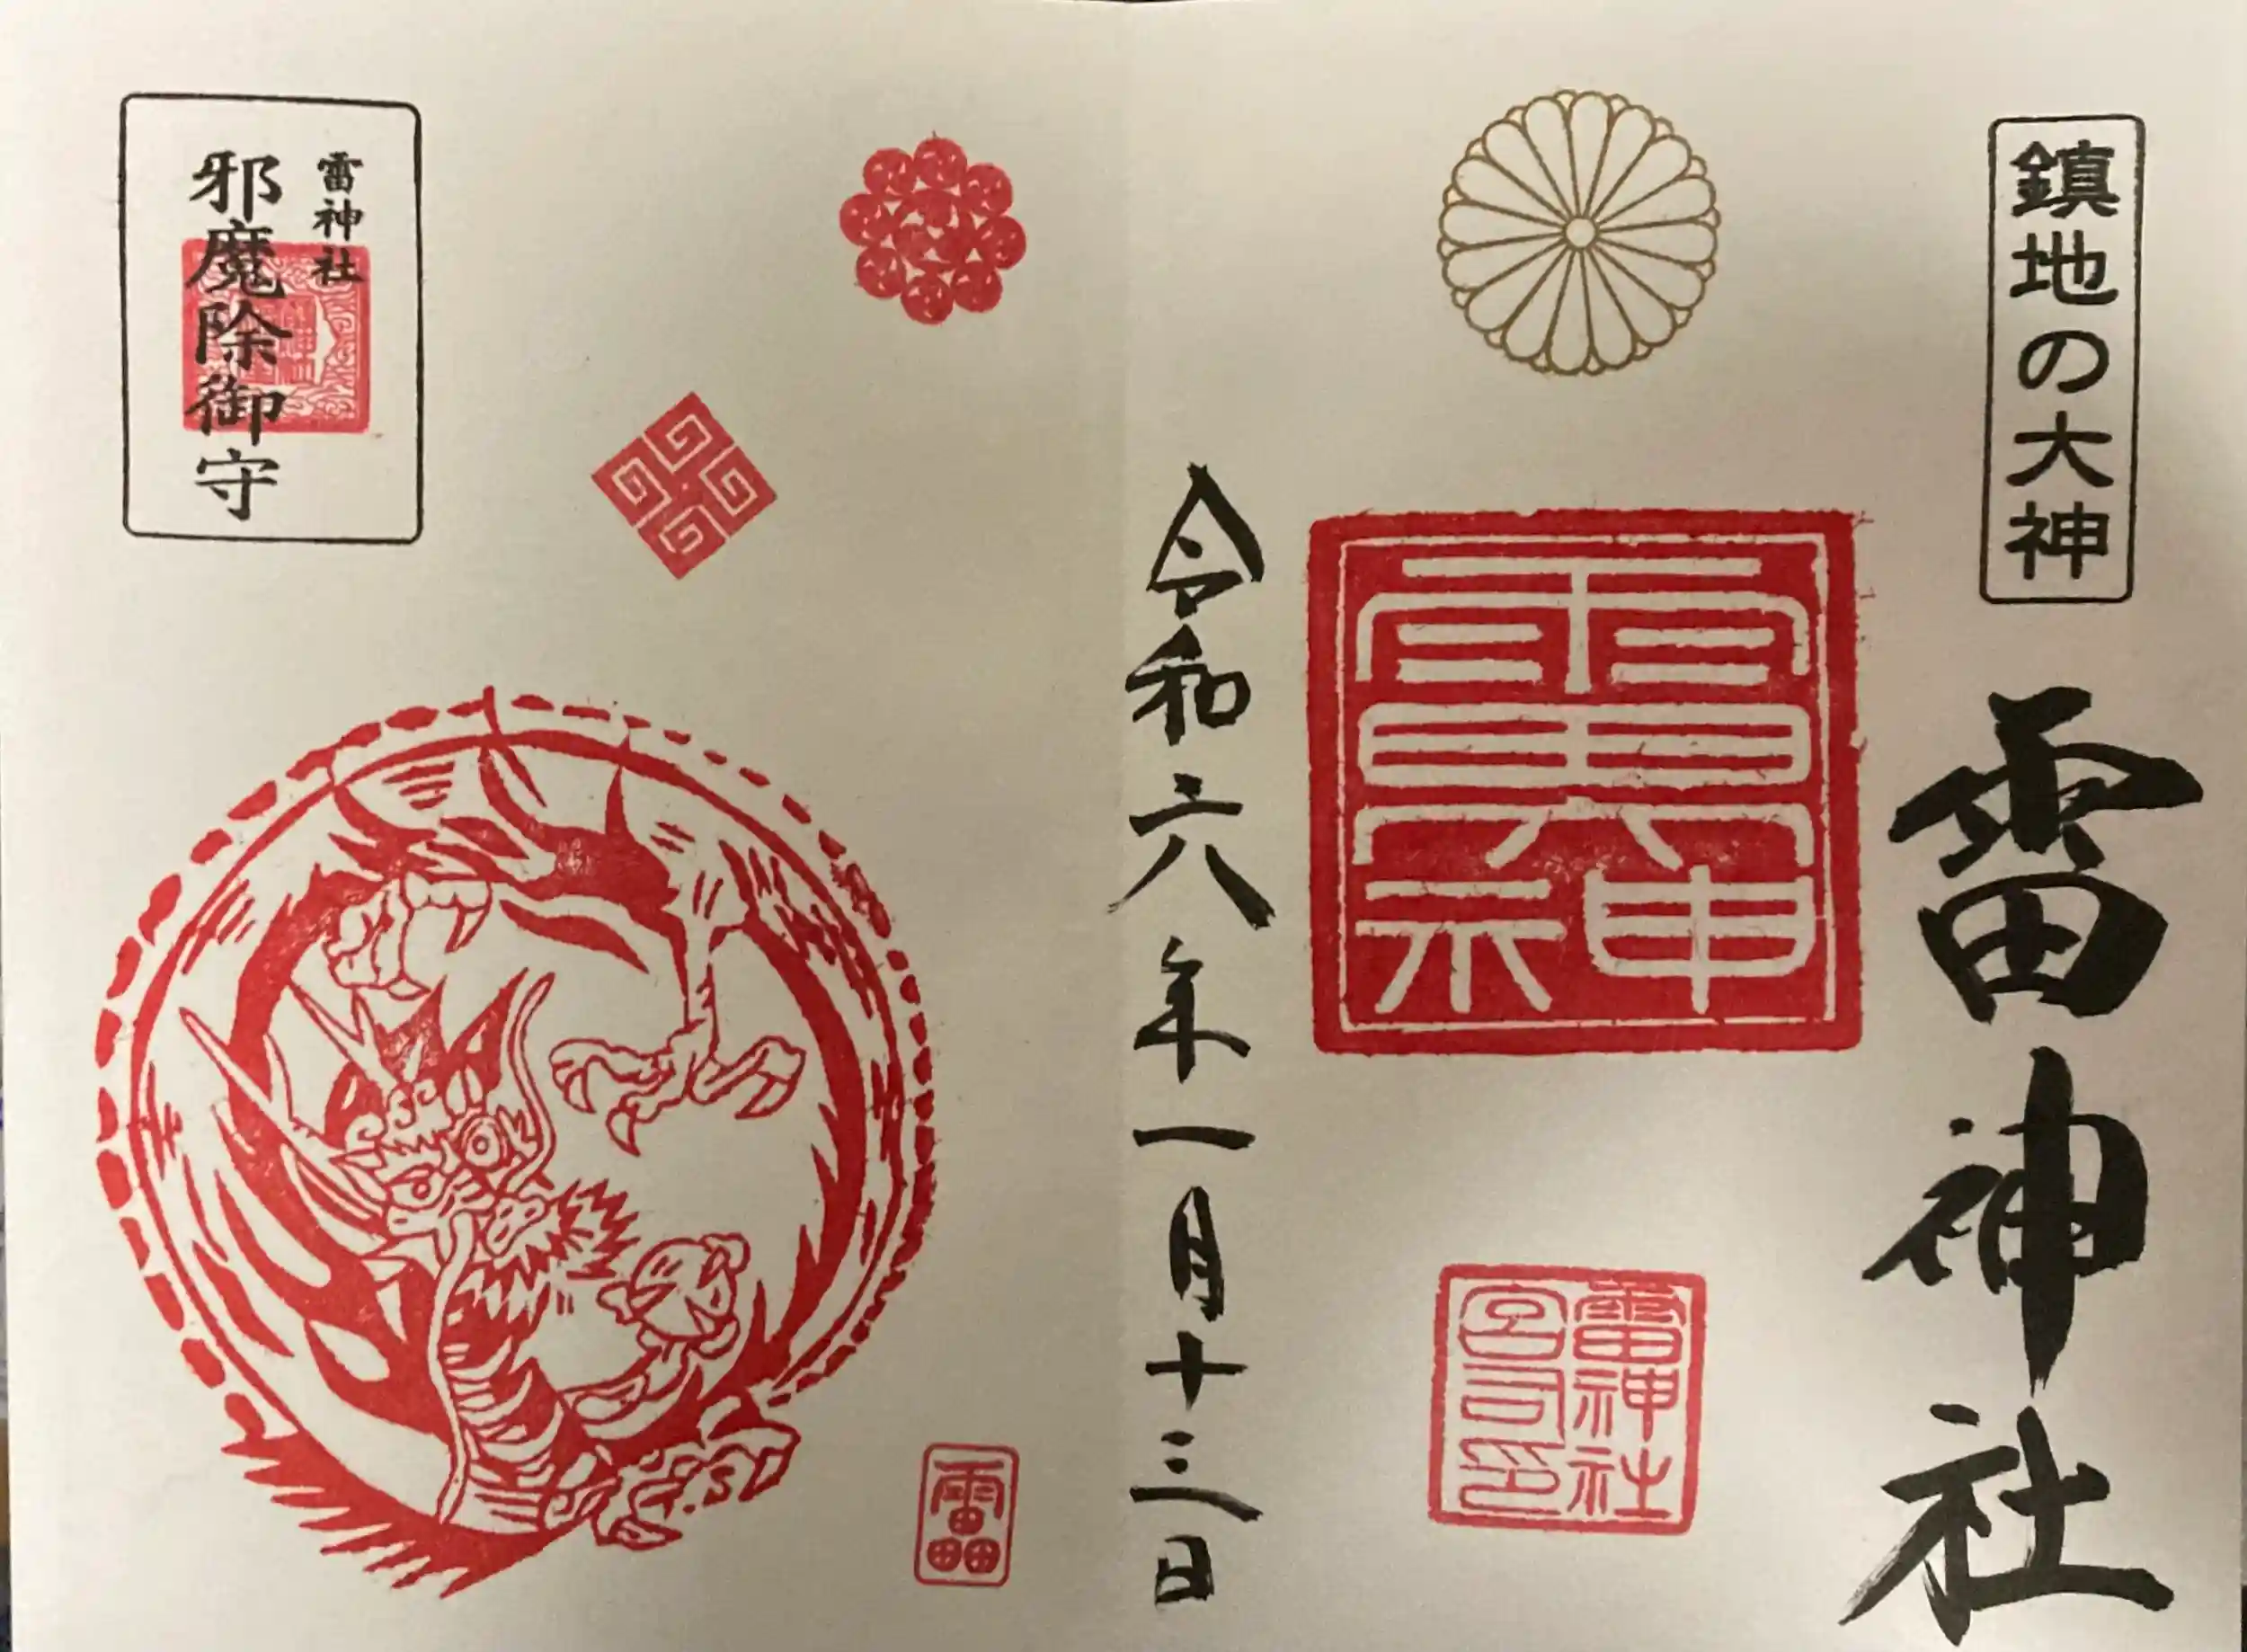 鎮地の大神
雷神社
雷神社宮司印
令和六年一月十三日
雷神社
邪魔除御守